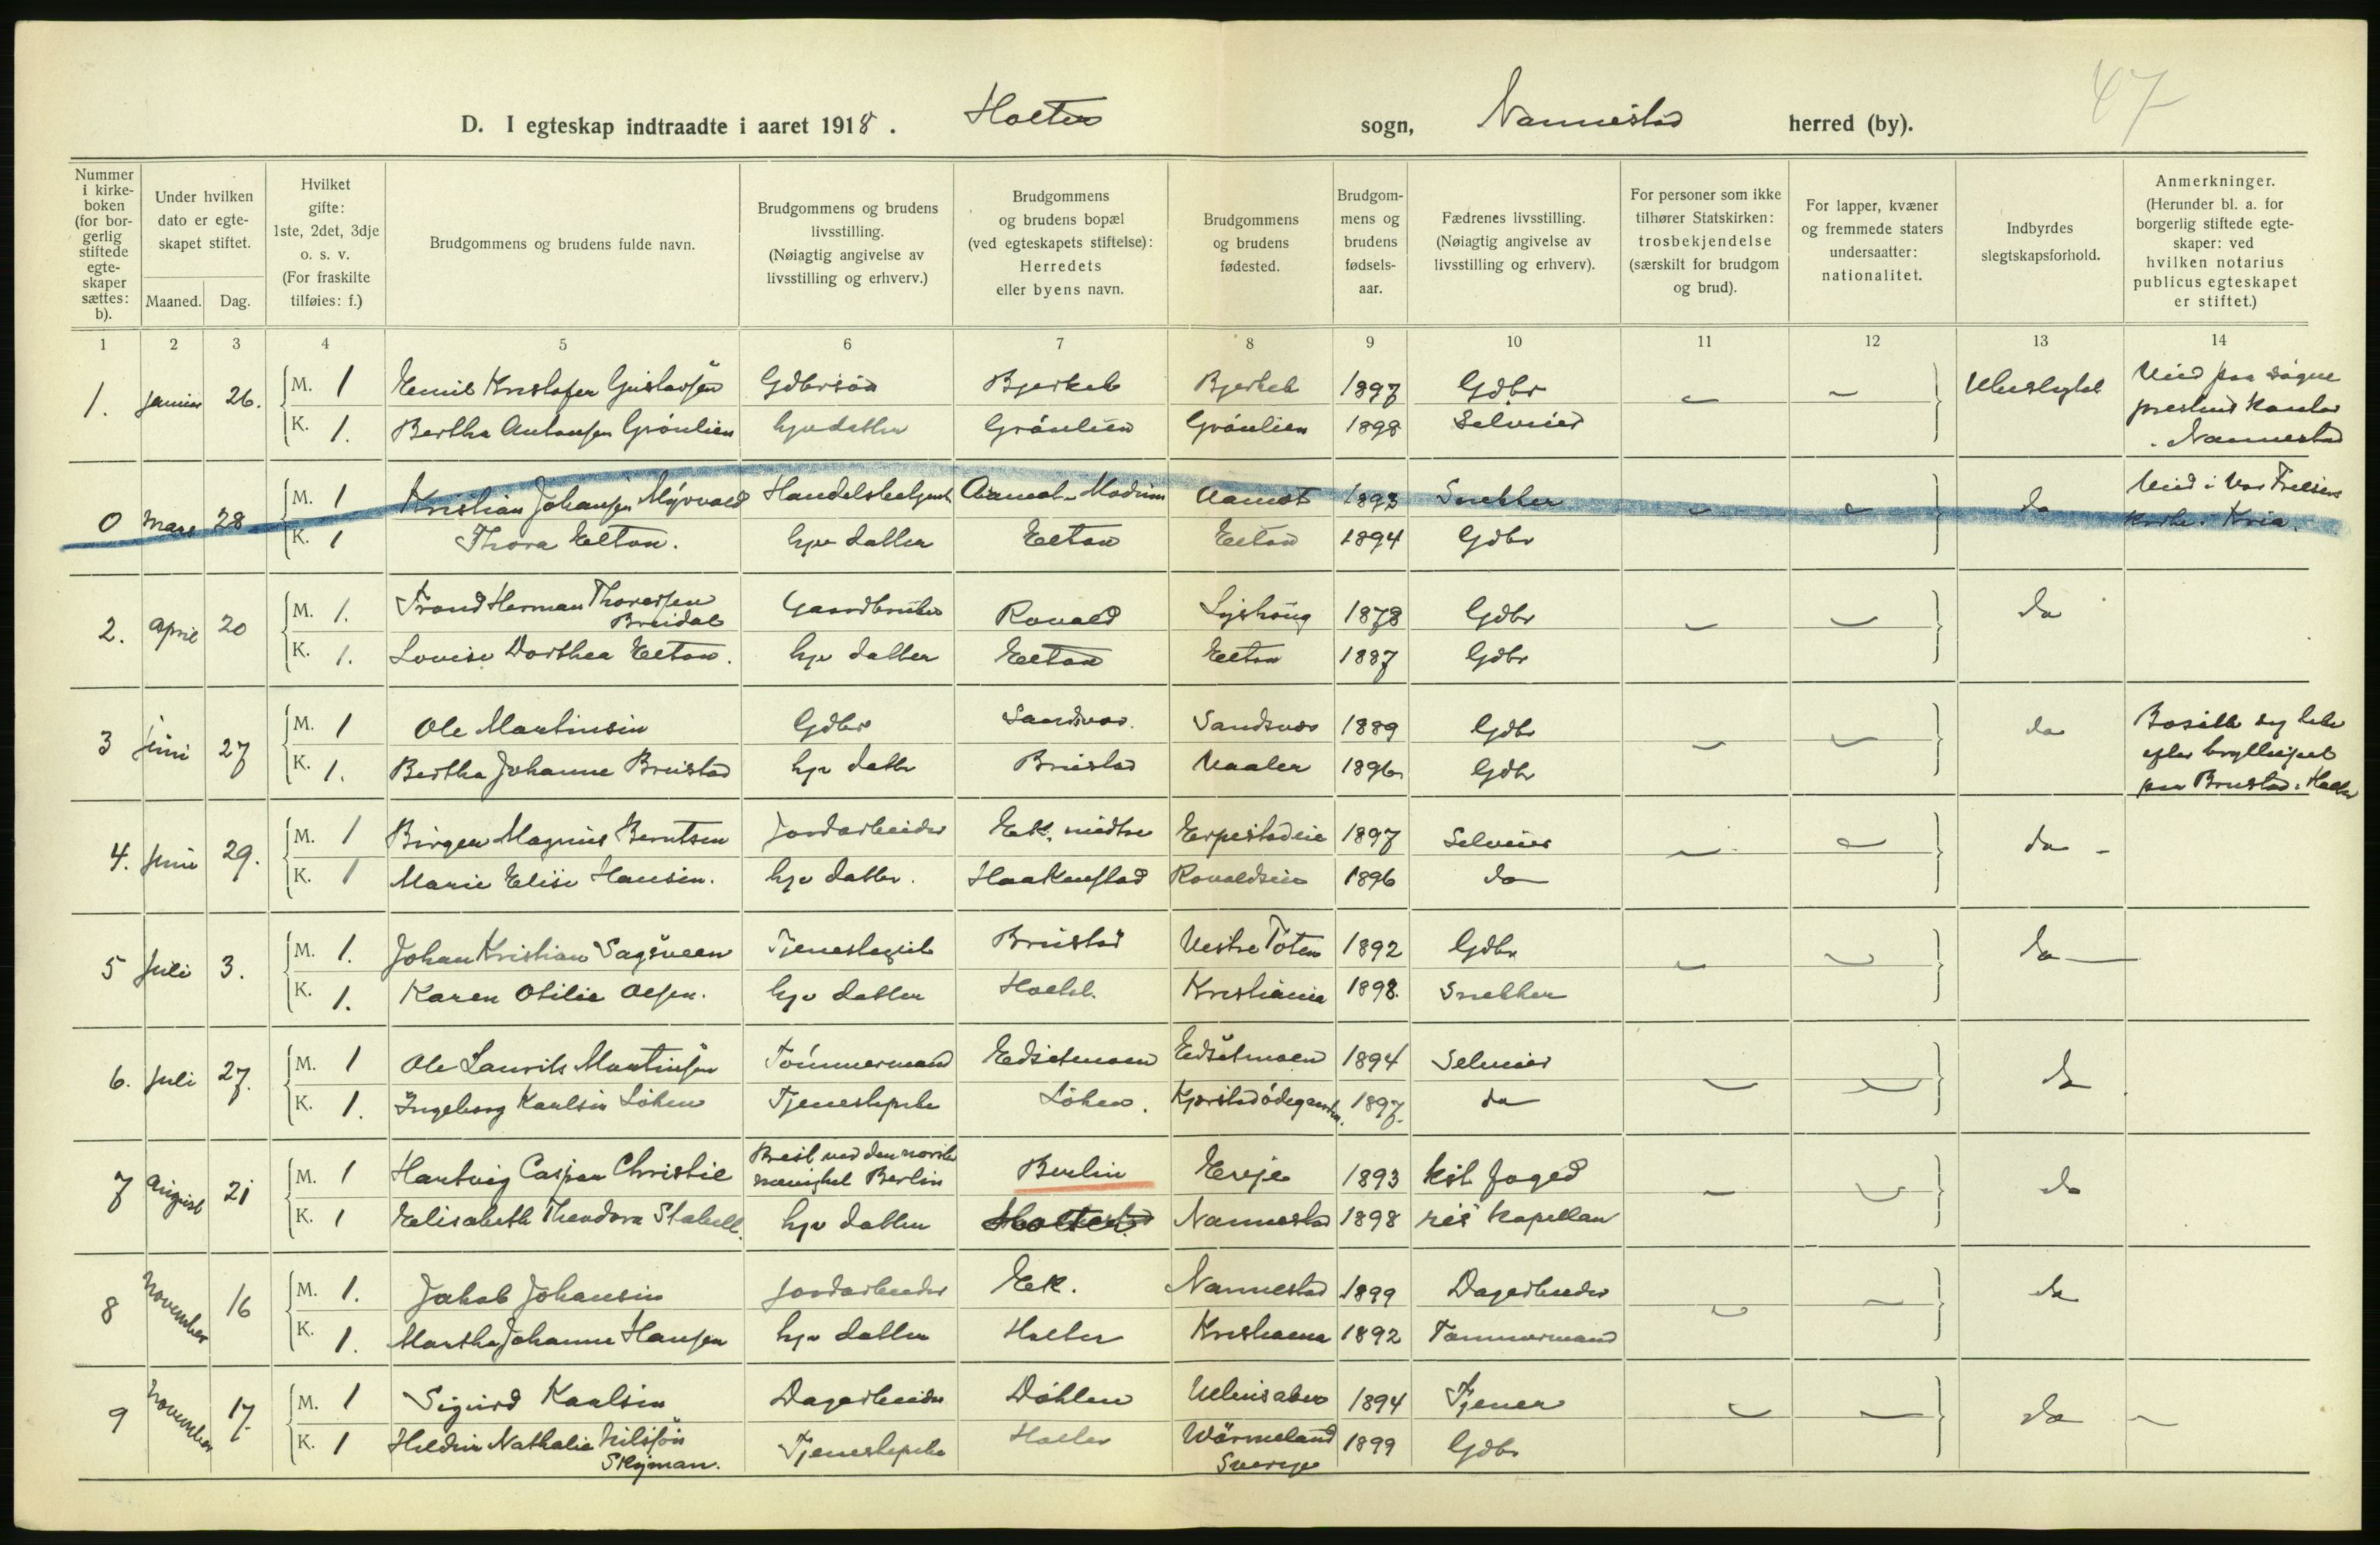 47
D. I egteskap indtraadte i aaret 1918. Holter sogn, Nannestad herred (by).
Nummer i kirke-boken (for bor-gerlig stiftede egte-skaper sættes: b).
Under hvilken dato er egte-skapet stiftet.
Maaned. Dag.
Hvilket gifte: 1ste, 2det, 3dje o. s. v. (For fraskilte tilføies: f.)
Brudgommens og brudens fulde navn.
Brudgommens og brudens livsstilling. (Nøiagtig angivelse av livsstilling og erhverv.)
Brudgommens og brudens bopæl (ved egteskapets stiftelse): Herredets eller byens navn.
Brudgommens og brudens fødested.
Brudgom-mens og brudens fødsels-aar.
Fædrenes livsstilling. (Nøiagtig angivelse av livsstilling og erhverv).
For personer som ikke tilhører Statskirken: trosbekjendelse (særskilt for brudgom og brud).
For lapper, kvæner og fremmede staters undersaatter: nationalitet.
Indbyrdes slegtskapsforhold.
Anmerkninger. (Herunder bl. a. for borgerlig stiftede egte-skaper: ved hvilken notarius publicus egteskapet er stiftet.)
1 2 3 4 5 6 7 8 9 10 11 12 13 14
1. Januar 26. M. 1 Emil Kristofer Gustavsen Gdbrsøn Bjerkeb Bjerkeb 1897 Gdbr Ubeslegtet Viet paa sogne
K. 1. Bertha Antonsen Grønlien hjv datter Grønlien Grønlien 1898 Selveier prestens kontor
Nannestad
0 Mars 28 M. 1 Kristian Johansen Myrvold Handelsbetjent Aamot Modum Aamot 1893 Snekker do Viet i Vor Frelsers
K. 1 Thora Elton. hjv datter Elton Elton 1894 Gdbr Kirke. Kria.
2. April 20 M. 1. Trond Herman Thoresen Breidal Gaardbruker Rovald 1878 Gdbr do
K. 1. Lovise Dorthea Elton. hjv datter Elton Elton 1887 Gdbr
3 Juni 27 M. 1 Ole Martinsen Gdbr Sandsnes. Sandsnes 1889 Gdbr do Bosatte sig
K. 1. Bertha Johanne Brustad hjv datter Brustad Vaaler 1896 Gdbr efter bryllupet
paa Brustad i Holter
4. Juni 29. M. 1 Birger Magnus Berntsen Jordarbeider Ek. nedre Erpestadeie 1897 Selveier do -
K. 1 Marie Elise Hansen. hjv datter. Haakenstad Rovaldseie 1896 do
5 Juli 3. M. 1. Johan Kristian Sagsveen Brustad Vestre Toten 1892 Gdbr do
K. 1. Karen Otilie Olsen. hjv datter Holter. Kristiania 1898. Snekker
6. Juli 27. M. 1 Ole Laurits Martinsen Tømmermand Edsetmoen Edsetmoen 1894 Selveier do
K. 1. Ingeborg Karlsen Løken Tjenestepike Løken. 1897. do
7 August 21 M. 1 Hartvig Caspar Christie Prest ved den norske menighet Berlin Berlin 1893 kst foged do
K. 1 Elisabeth Theodora Stabell. hjv datter Holter Nannestad 1898 res kapellan
8 November 16 M. 1. Jakob Johansen Jordarbeider Ek. Nannestad 1899 Dagarbeider do
K. 1. Martha Johanne Hansen hjv datter Holter Kristiania 1892 Tømmermand
9 November 17. M. 1 Sigurd Karlsen Dagarbeider Døhlen Ullensaker 1894 Tjener do
K. 1 Nathalie Nilsson Skyman. Tjenestepike Holter Wärmeland Sverige 1899 Gdbr